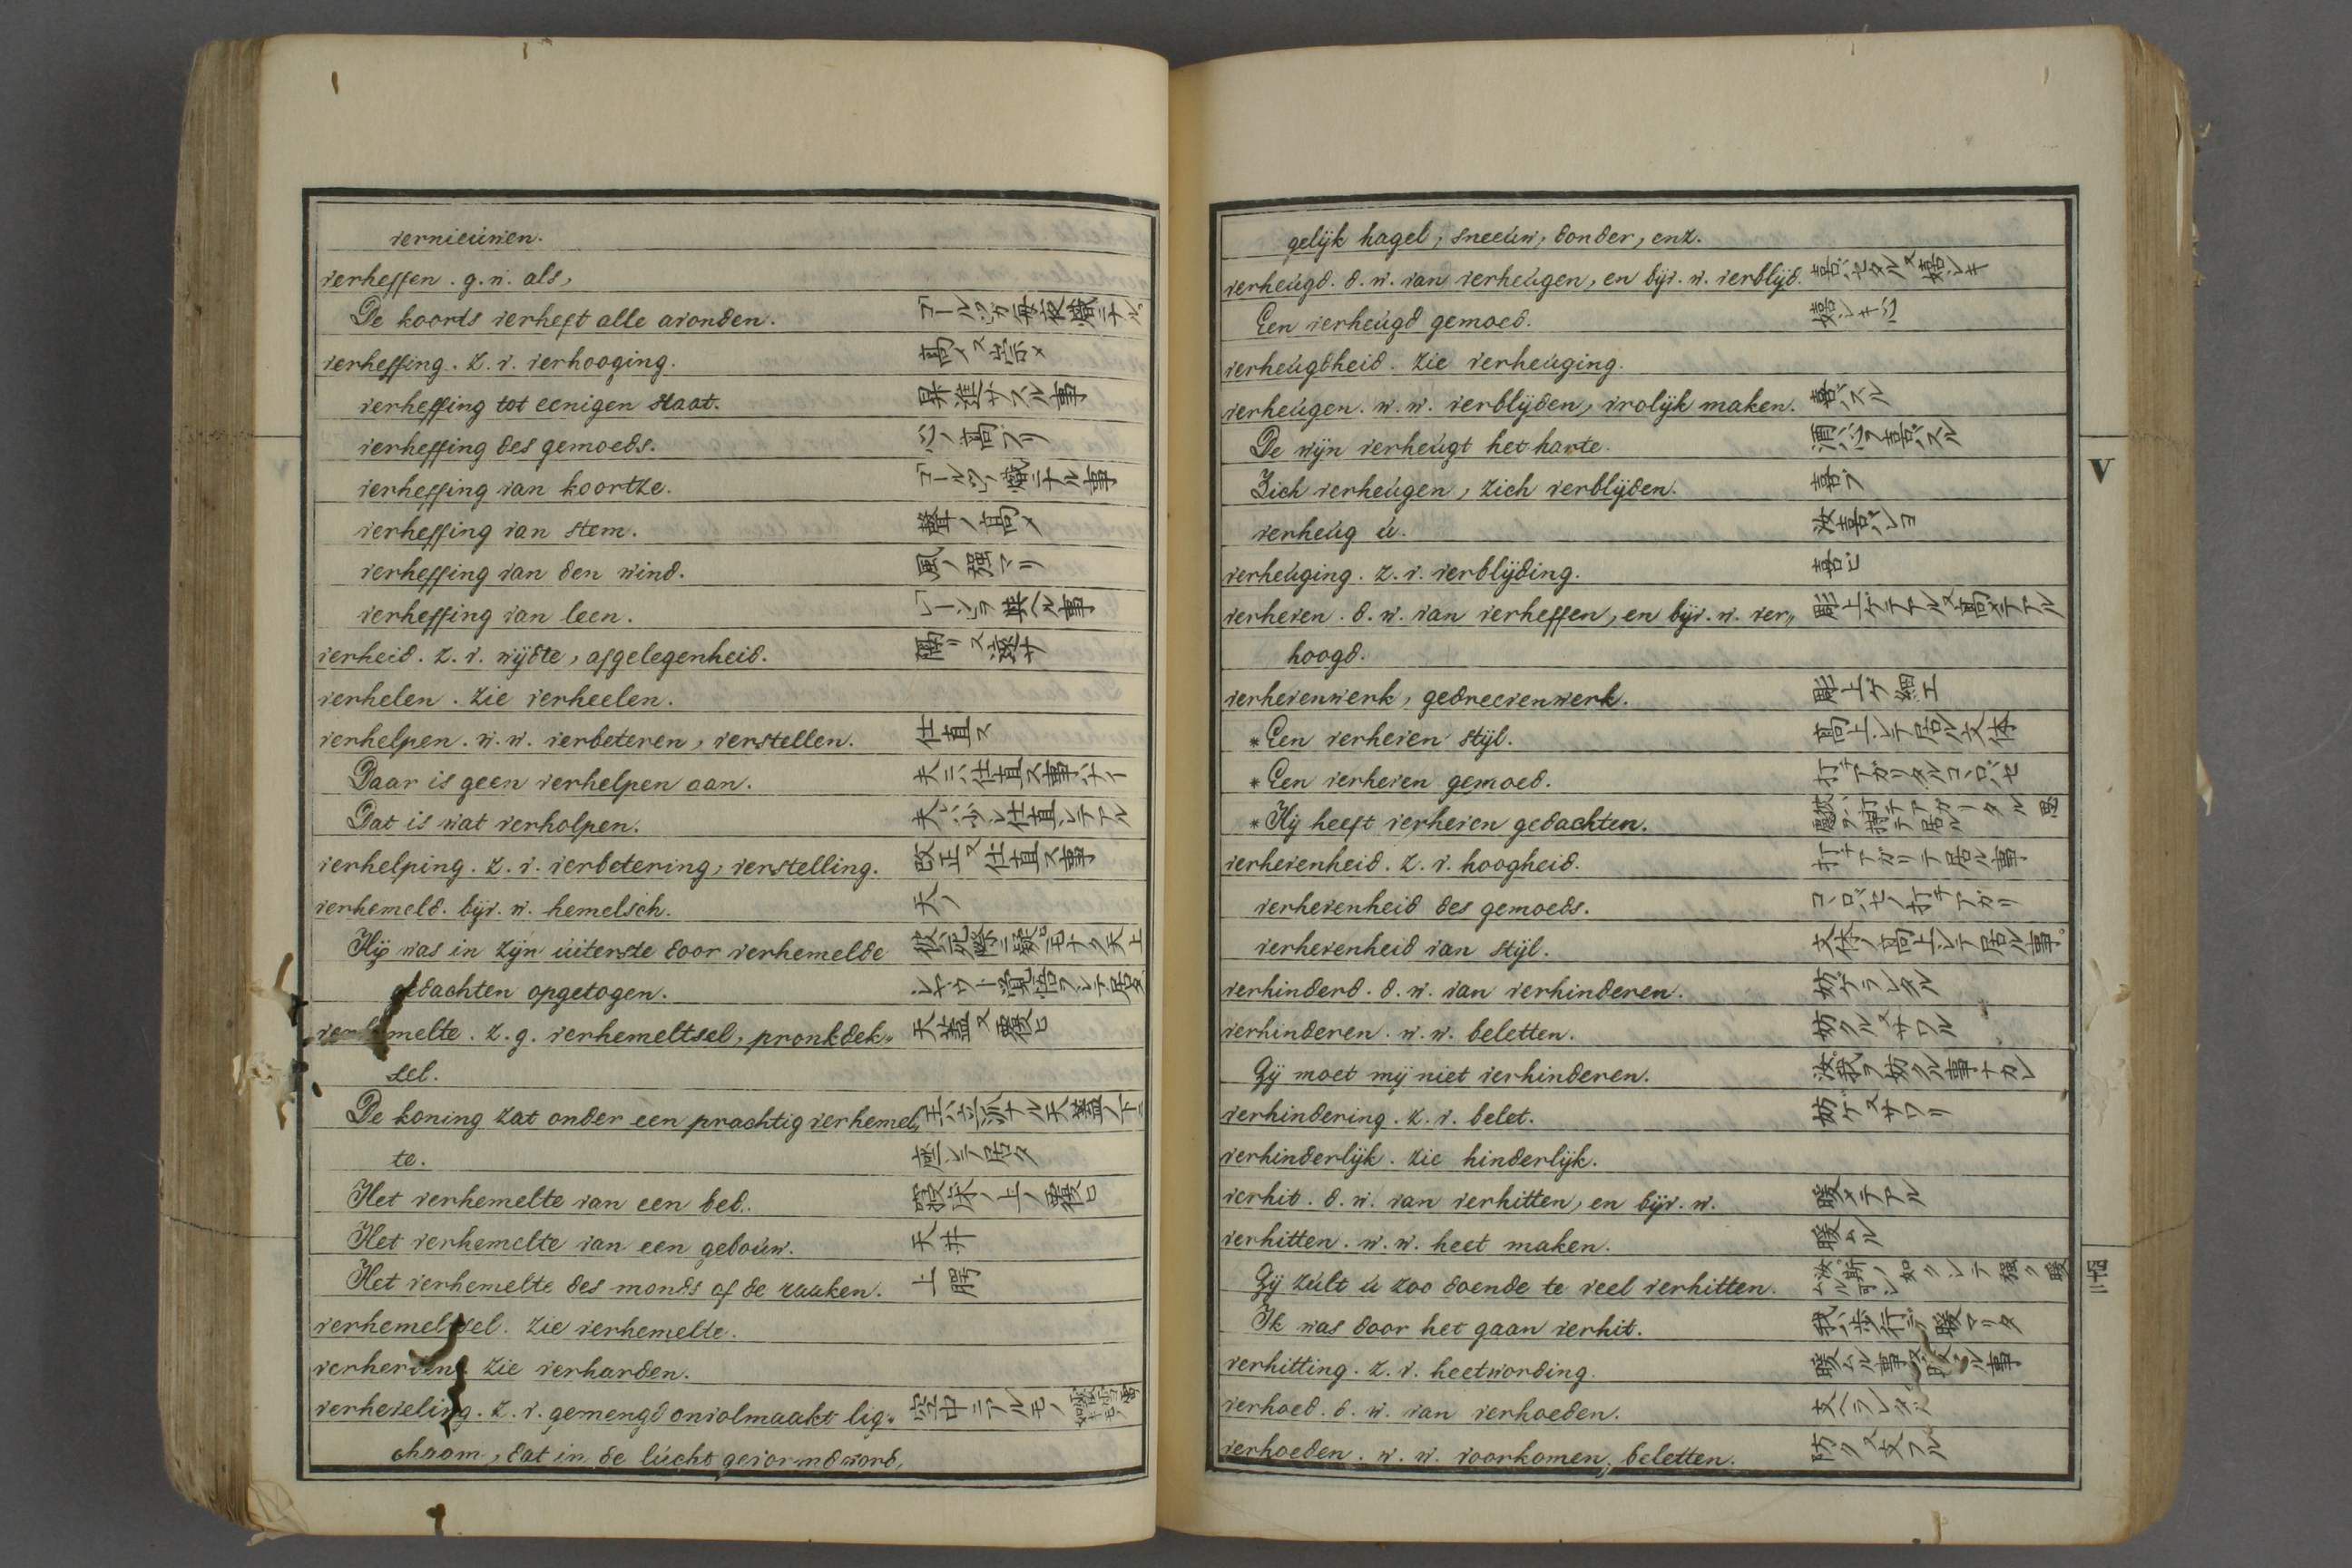 vernieuwen.
verheffen. g. w. als,
De koorts verheft alle avonden. コールツガ毎夜熾ニナル
verheffing. z. v. verhooging. 高メ又崇メ
verheffing tot eenigen staat. 昇進サスル事
verheffing des gemoeds. 心ノ高ブリ
verheffing van koortze. コールツノ熾ニナル事
verheffing van stem. 聲ノ高メ
verheffing van den wind. 風ノ强マリ
verheffing van leen. レーンヲ與ヘル事
verheid. z. v. wijdte, afgelegenheid. 隔リ又遠サ
verhelen. zie verheelen.
verhelpen. w. w. verbeteren, verstellen. 仕直ス
Daar is geen verhelpen aan. 夫ニハ仕直ス事ハナイ
Dat is wat verholpen. 夫ハ少シ仕直シテアル
verhelping. z. v. verbetering, verstelling. 改正又仕直ス事
verhemeld. bijv. w. hemelsch. 天ノ
Hij was in zijn uiterste door verhemelde 彼ハ死際ニ疑モナク天上
gedachten opgetogen. シヤウト覚悟ヲシテ居タ
verhemelte. z. g. verhemeltsel, pronkdek„ 天蓋又覆ヒ
sel.
De koning zat onder een prachtig verhemel„ 王ハ立派ナル天蓋ノ下ニ
te. 座シテ居タ
Het verhemelte van een bed. 寝床ノ上ノ覆ヒ
Het verhemelte van een gebouw. 天井
Het verhemelte des monds of de raaken. 上腭
verhemeltsel. zie verhemelte.
verherden. zie verharden.
verheveling. z. v. gemengd onvolmaakt lig„ 空中ニアルモノ
chaam, dat in de lucht gevormd word,
gelijk hagel, sneeuw, donder, enz.
verheugd. d. w. van verheugen, en bijv. w. verblijd. 喜バセタル又嬉シキ
Een verheugd gemoed. 嬉シキ心
verheugdheid. zie verheuging.
verheugen. w. w. verblijden, vrolijk maken. 喜バスル
De wijn verheugt het harte. 酒ハ心ヲ喜バスル
Zich verheugen, zich verblijden. 喜ブ
verheug u. 汝喜バレヨ
verheuging. z. v. verblijding. 喜ビ
verheven. d. w. van verheffen, en bijv. w. ver„ 彫上ゲテアル又高メテアル
hoogd.
verhevenwerk, gedreevenwerk. 彫上ゲ細工
*Een verheven stijl. 高上シテ居ル文体
*Een verheven gemoed. 打チアガリタルコヽロバセ
*Hij heeft verheven gedachten. 彼ハ打チアガリタル思慮ヲ持テ居ル
verhevenheid. z. v. hoogheid. 打チアガリテ居ル事
verhevenheid des gemoeds. コヽロバセノ打チアガリ
verhevenheid van stijl. 文体ノ高上シテ居ル事
verhinderd. d. w. van verhinderen. 妨ゲラレタル
verhinderen. w. w. beletten. 妨クル又サワル
Gij moet mij niet verhinderen. 汝我ヲ妨クル事ナカレ
verhindering. z. v. belet. 妨ゲ又サワリ
verhinderlijk. zie hinderlijk.
verhit. d. w. van verhitten, en bijv. w. 暖メテアル
verhitten. w. w. heet maken. 暖ムル
Gij zult u zoo doende te veel verhitten. 汝ハ斯ノ如クシテ强ク暖ムル可シ
Ik was door het gaan verhit. 我ハ歩行テ暖マリタ
verhitting. z. v. heetwording. 暖ムル事
verhoed. d. w. van verhoeden. 支ヘラレタル
verhoeden. w. w. voorkomen, beletten. 防ク又支フル
V
四十二